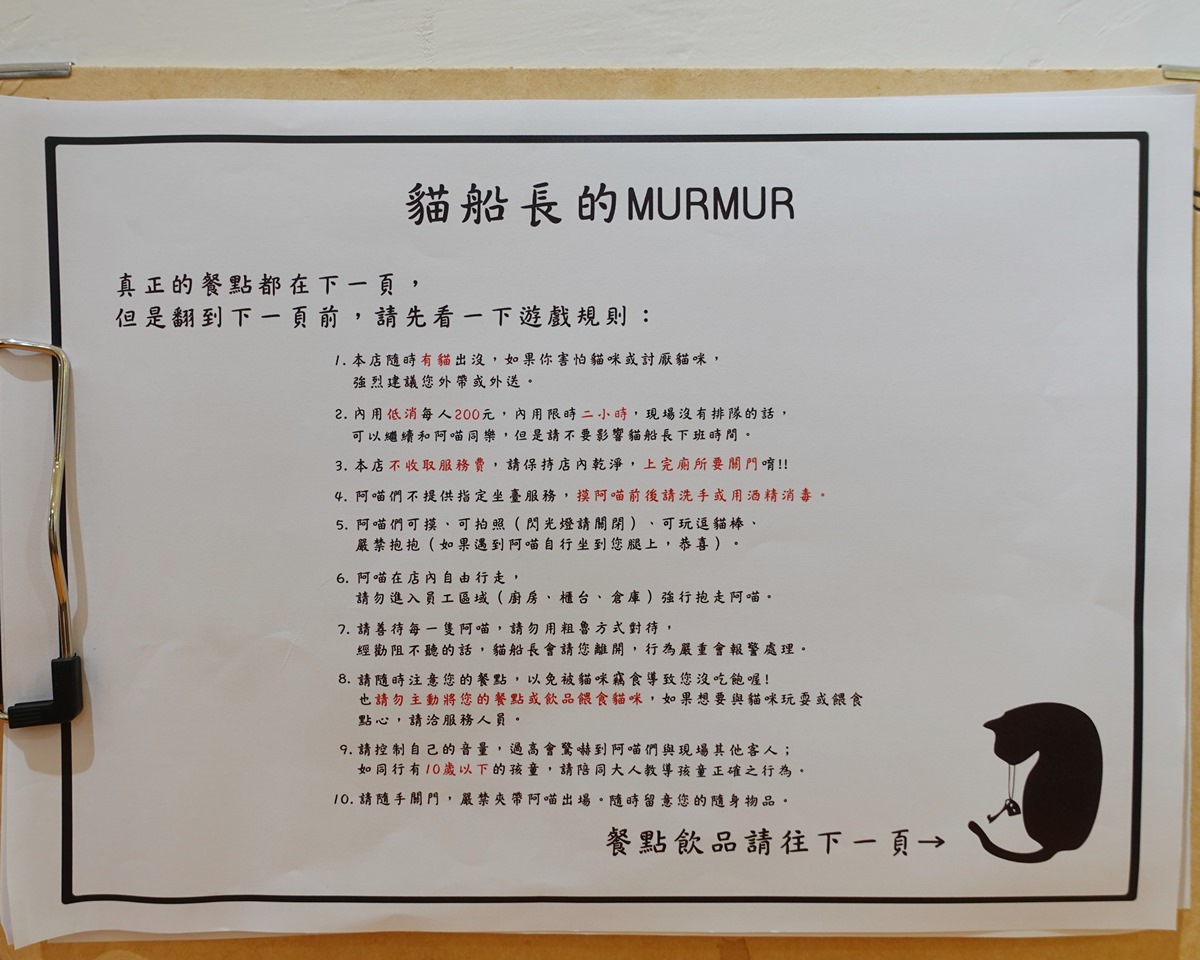 貓船長的MURMUR
真正的餐點都在下一頁，
但是翻到下一頁前，請先看一下遊戲規則：
1. 本店隨時有貓出沒，如果你害怕貓咪或討厭貓咪，
強烈建議您外帶或外送。
2. 內用低消每人200元，內用限時二小時，現場沒有排隊的話，
可以繼續和阿喵同樂，但是請不要影響貓船長下班時間。
3. 本店不收取服務費，請保持店內乾淨，上完廁所要關門唷!!
4. 阿喵們不提供指定坐臺服務，摸阿喵前後請洗手或用酒精消毒。
5. 阿喵們可摸、可拍照（閃光燈請關閉）、可玩逗貓棒、
嚴禁抱抱（如果遇到阿喵自行坐到您腿上，恭喜）。
6. 阿喵在店內自由行走，
請勿進入員工區域（廚房、櫃台、倉庫）強行抱走阿喵。
7. 請善待每一隻阿喵，請勿用粗魯方式對待，
經勸阻不聽的話，貓船長會請您離開，行為嚴重會報警處理。
8. 請隨時注意您的餐點，以免被貓咪竊食導致您沒吃飽喔!
也請勿主動將您的餐點或飲品餵食貓咪，如果想要與貓咪玩耍或餵食
點心，請洽服務人員。
9. 請控制自己的音量，過高會驚嚇到阿喵們與現場其他客人；
如同行有10歲以下的孩童，請陪同大人教導孩童正確之行為。
10. 請隨手關門，嚴禁夾帶阿喵出場。隨時留意您的隨身物品。
餐點飲品請往下一頁→